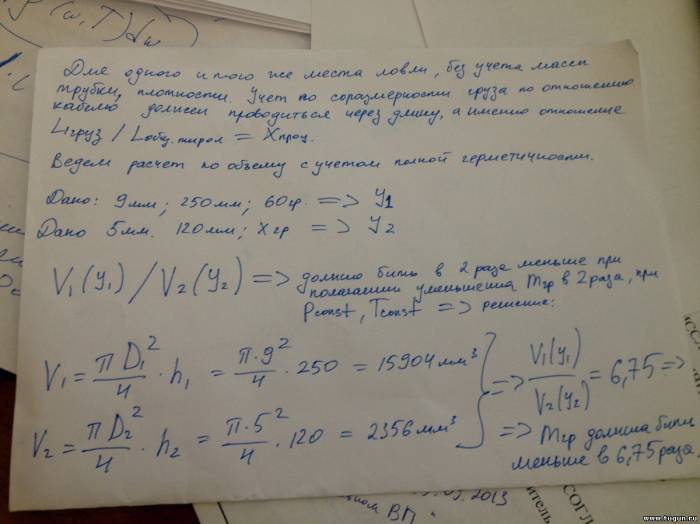 (ω, T) dω
Для одного и того же места ловли, без учета массы
трубки, плотности. Учет по соразмерности груза по отношению
кабелю должен проводиться через длину, а именно отношение
Lгруз / Lобщ. тирол = Xпроц.
Ведем расчет по объему с учетом полной герметичности.
Дано: 9мм; 250мм; 60гр. => y1
Дано 5мм. 120мм; Xгр => y2
V1(y1) / V2(y2) => должно быть в 2 раза меньше при
полагании уменьшения mгр в 2 раза, при
Pconst, Tconst => решение:
V1 = πD1²/4 · h1 = π·9²/4 · 250 = 15904мм³
V2 = πD2²/4 · h2 = π·5²/4 · 120 = 2356мм³
=> V1(y1)/V2(y2) = 6,75 =>
=> mгр должна быть
меньше в 6,75 раза.
2013
ВП"
СОГЛ
www.tugun.ru